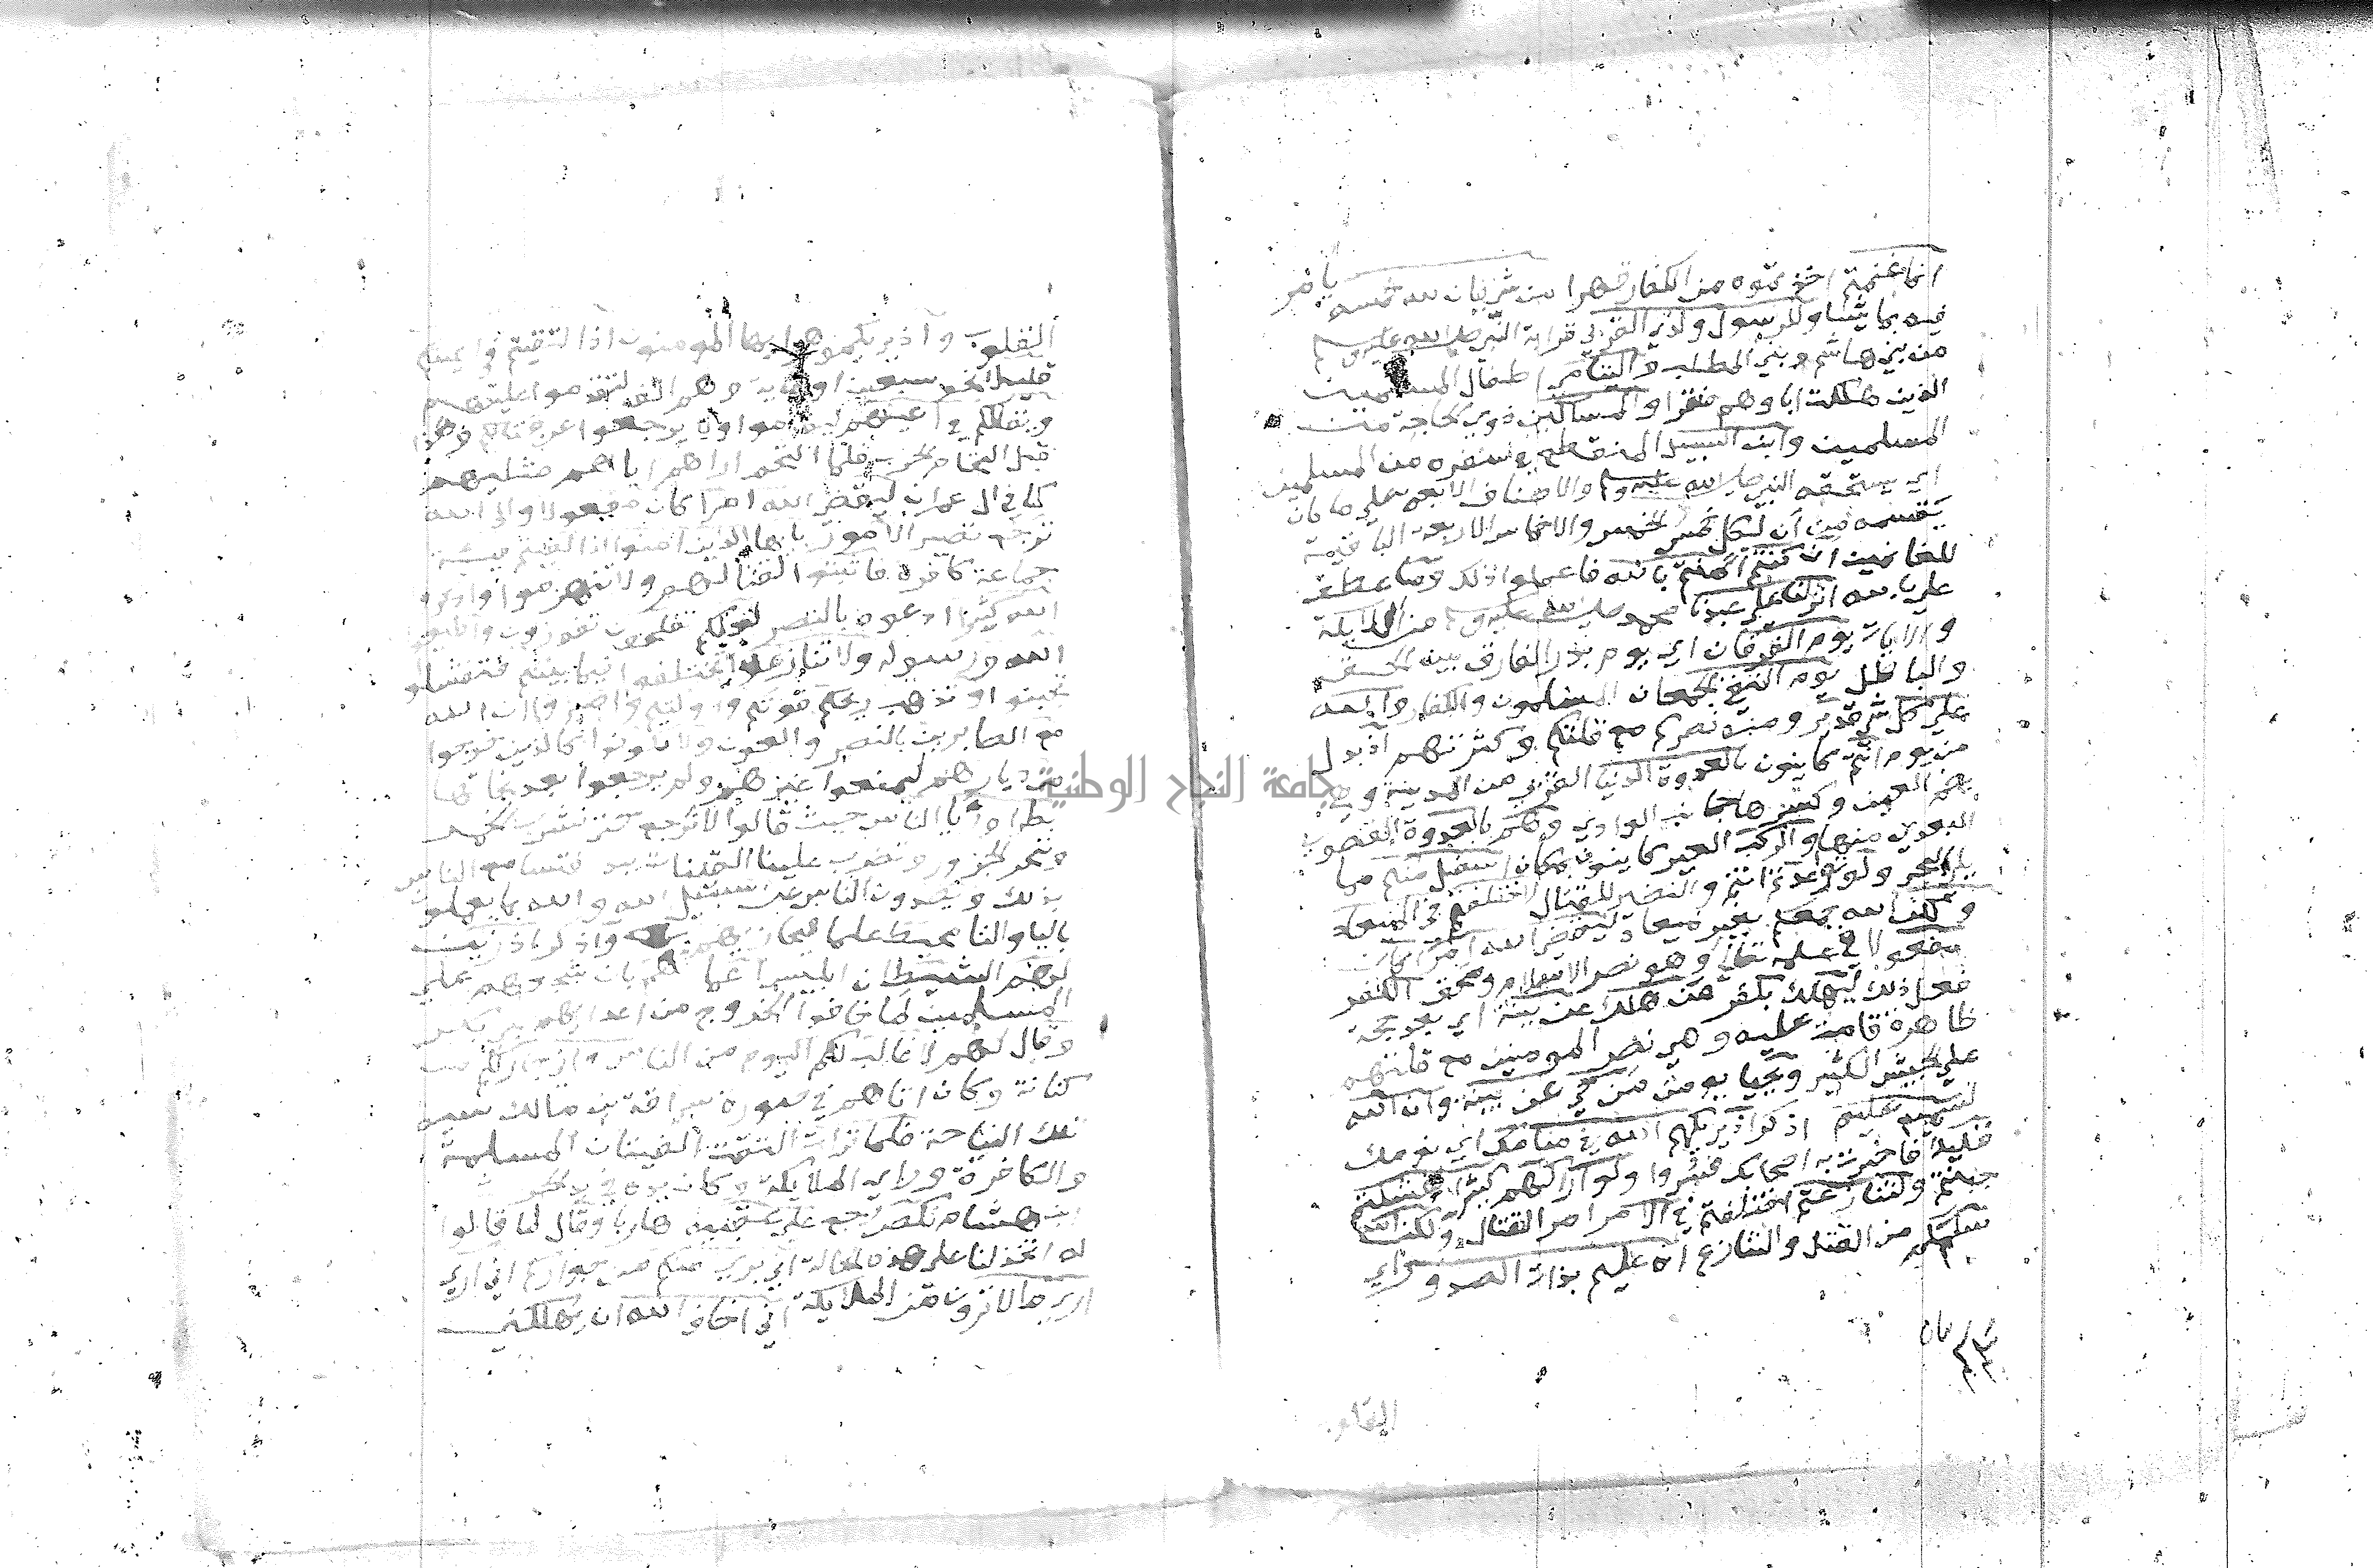 انما غنمتم اخذتموه من الكفار قهرا من شي فان لله خمسه يامر
فيه بما يشا وللرسول ولذي القربى قرابة النبي صلى الله عليه وسلم
من بني هاشم وبني المطلب واليتامى اطفال المسلمين
الذين هلكت اباوهم فقرا والمساكين ذوي الحاجة من
المسلمين وابن السبيل المنقطع في سفره من المسلمين
اي يستحقه النبي صلى الله عليه وسلم والاصناف الاربعه على ما كان
يقسمه من ان لكل خمس الخمس والاخماس الاربعة الباقية
للغانمين ان كنتم امنتم بالله فاعملوا ذلك وما عطف
على بالله انزلنا على عبدنا محمد صلى الله عليه وسلم من الملايكة
والايات يوم الفرقان اي يوم بدر الفارق بين الحق
والباطل يوم التقى الجمعان المسلمون والكفار والله
على كل شي قدير ومنه نصركم مع قلتكم وكثرتهم اذ بدل
من يوم انتم كاينون بالعدوة الدنيا القربى من المدينة وهي
بضم العين وكسرها جانب الوادي وهم بالعدوة القصوى
البعدى منها والركب العير كاينون بمكان اسفل منكم مما
يلي البحر ولو تواعدتم انتم والنفير للقتال لاختلفتم في الميعاد
ولكن الله جمعكم بغير ميعاد ليقضي الله امرا كان
مفعولا في علمه تعالى وهو نصر الاسلام ومحق الكفر
فعل ذلك ليهلك يكفر من هلك عن بينة اي بعد حجة
ظاهرة قامت عليه وهي نصر المومنين مع قلتهم
على الجيش الكثير ويحيا يومن من حي عن بينة وان الله
لسميع عليم اذكر اذ يريكهم الله في منامك اي نومك
قليلا فاخبرت به اصحابك فسروا ولو اراكهم كثيرا لفشلتم
جبنتم ولتنازعتم اختلفتم في الامر امر القتال ولكن الله
سلمكم من الفشل والتنازع انه عليم بذات الصدور
القلوب
القلوب واذ يريكموهم ايها المومنون اذا التقيتم في اعينكم
قليلا نحو سبعين او ماية وهم الف لتقدموا عليهم
ويقللكم في اعينهم ليقدموا ولا يرجعوا عن قتالكم وهذا
قبل التحام الحرب فلما التحم اراهم اياهم مثليهم
كما في ال عمران ليقضي الله امرا كان مفعولا والى الله
ترجع تصير الامور يا ايها الذين امنوا اذا لقيتم فية
جماعة كافرة فاثبتوا لقتالهم ولا تنهزموا واذكروا
الله كثيرا ادعوه بالنصر لعلكم تفلحون تفوزون واطيعوا
الله ورسوله ولا تنازعوا تختلفوا فيما بينكم فتفشلوا
تجبنوا وتذهب ريحكم قوتكم ودولتكم واصبروا ان الله
مع الصابرين بالنصر والعون ولا تكونوا كالذين خرجوا
من ديارهم ليمنعوا غيرهم ولم يرجعوا بعد نجاتها
بطرا وريا الناس حيث قالوا لا نرجع حتى نشرب الخمر
وننحر الجزور وتضرب علينا القينات ببدر فيتسامع الناس
بذلك ويصدون الناس عن سبيل الله والله بما يعملون
باليا والتا محيط علما فيجازيهم به واذكر اذ زين
لهم الشيطان ابليس اعمالهم بان شجعهم على
المسلمين لما خافوا الخروج من اعدايهم بني بكر
وقال لهم لا غالب لكم اليوم من الناس واني جار لكم من
كنانة وكان اتاهم في صورة سراقة بن مالك سيد
تلك الناحية فلما تراات التقت الفيتان المسلمة
والكافرة وراى الملايكة وكان يده في يد الحرث
ابن هشام نكص رجع على عقبيه هاربا وقال لما قالوا
له اتخذلنا على هذه الحالة اني بري منكم من جواركم اني ارى
ارى ما لا ترون من الملايكة اني اخاف الله ان يهلكني
جامعة النجاح الوطنية